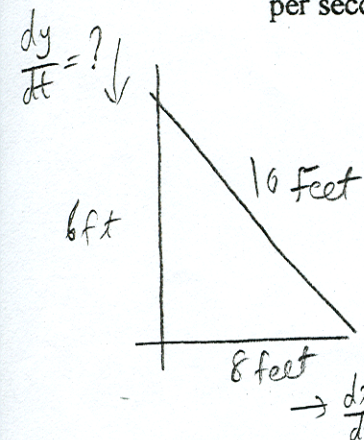 per seco
dy/dt = ? ↓
10 Feet
6 ft
8 feet
→ dx
d